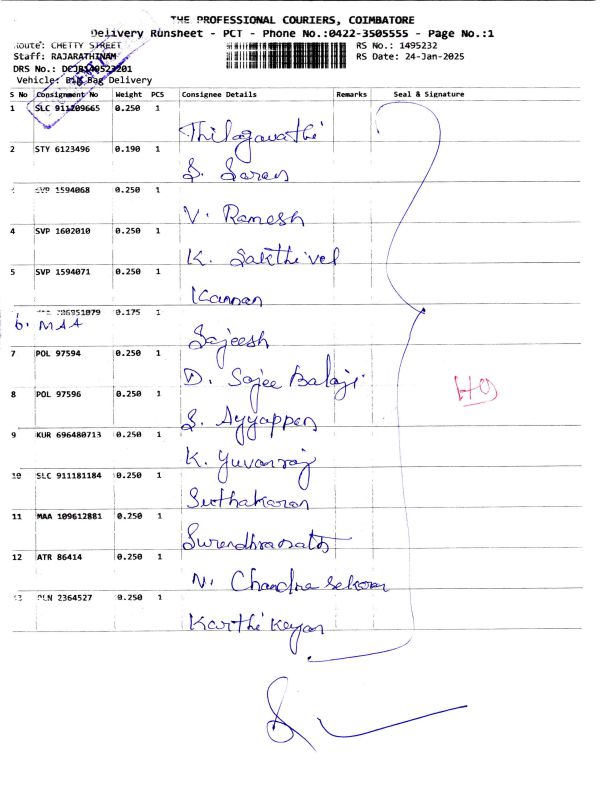 THE PROFESSIONAL COURIERS, COIMBATORE
Delivery Runsheet - PCT - Phone No.:0422-3505555 - Page No.:1
Route: CHETTY STREET RS No.: 1495232
Staff: RAJARATHINAM RS Date: 24-Jan-2025
DRS No.:
Vehicle: Big Bag Delivery
S No Consignment No Weight PCS Consignee Details Remarks Seal & Signature
1 SLC 911209665 0.250 1 Thilagavathi
2 STY 6123496 0.190 1 S. Saran
SVP 1594068 0.250 1 V. Ramesh
4 SVP 1602010 0.250 1 K. Sakthivel
5 SVP 1594071 0.250 1 Kannan
0.175 1 Sajeesh
6. MAA
7 POL 97594 0.250 1 D. Sajee Balaji
8 POL 97596 0.250 1 S. Ayyappan
9 KUR 696480713 0.250 1 K. Yuvanraj
10 SLC 911181184 0.250 1 Suthakaran
11 MAA 109612881 0.250 1
12 ATR 86414 0.250 1 N. Chandra sekaran
2364527 0.250 1 Karthikeyan
HO